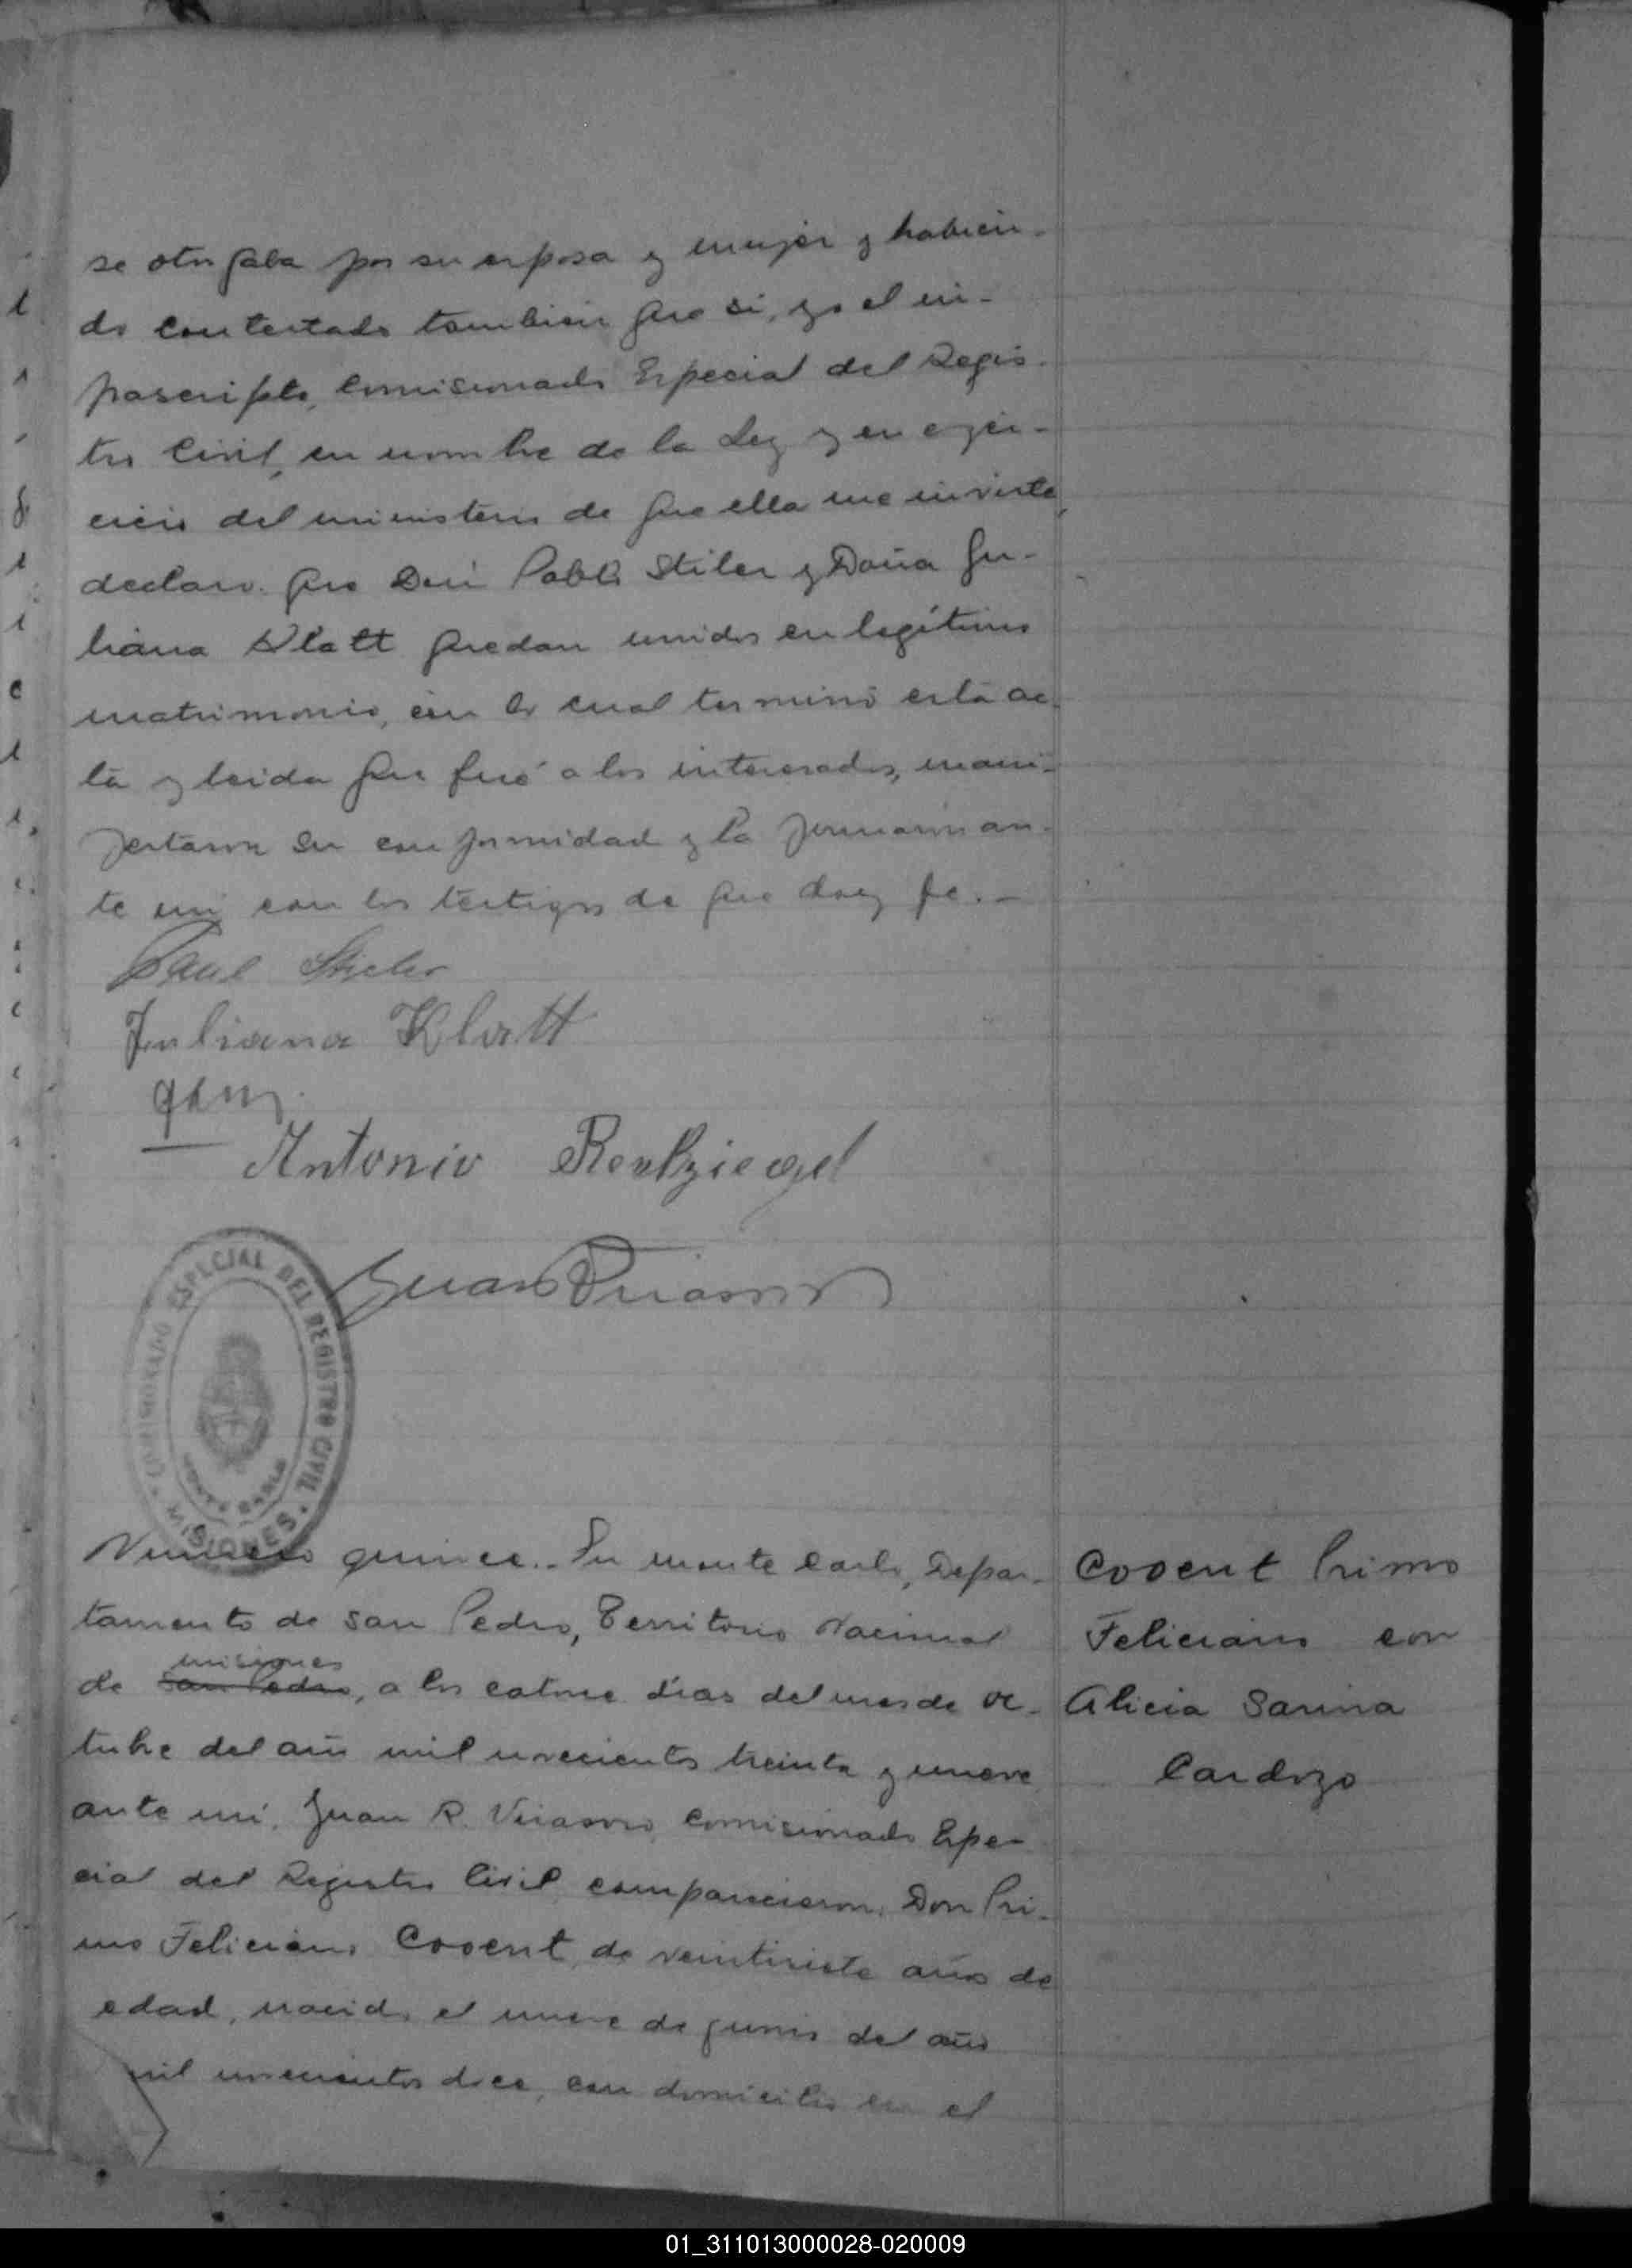 se otorgaba por su esposa y mujer y habien-
do contestado tambien que si, yo el in-
frascripto, Comisionado Especial del Regis-
tro Civil, en nombre de la Ley y en ejer-
cicio del ministerio de que ella me inviste,
declaro: que Don Pablo Stiler y Doña Ju-
liana Klatt quedan unidos en legítimo
matrimonio, con lo cual terminó esta ac-
ta y leida que fué a los interesados, mani-
festaron su conformidad y la firmaron an-
te mi con los testigos de que doy fe.-
Paul Stieler
Juliana Klatt
Antonio Rentziegel
Juan Virasoro
COMISIONADO ESPECIAL DEL REGISTRO CIVIL
MONTE CARLO
MISIONES
Numero quince.- En Monte Carlo, Depar-
tamento de San Pedro, Territorio Nacional
misiones
de San Pedro, a los catorce dias del mes de Oc-
tubre del año mil novecientos treinta y nueve
ante mi, Juan R. Virasoro Comisionado Espe-
cial del Registro Civil comparecieron: Don Pri-
mo Feliciano Cooent, de veintisiete años de
edad, nacido el nueve de junio del año
mil novecientos doce, con domicilio en el
Cooent Primo
Feliciano con
Alicia Sarina
Cardozo
01_311013000028-020009